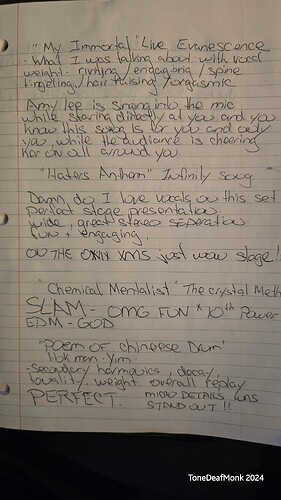 "My Immortal" Live Evanescence
- What I was talking about with vocal
weight. riviting / engaging / spine
tingeling / hair raising / orgasmic
Amy lee is singing into the mic
while staring directly at you and you
know this song is for you and only
you, while the audience is cheering
her on all around you.
"Haters Anthem" Infinity song
Damn, do I love vocals on this set
perfect stage presentation
wide, great stereo separation
fun + engaging.
ON THE ONIX XM5 just wow stage!!
"Chemical Mentalist" The crystal Meth
SLAM - OMG FUN * 10th Power
EDM - GOD
"Poem of chineese Drum"
Hok-man-yim
- secondary harmonics, decay,
tonality, weight. overall replay
PERFECT. MICRO DETAILS
STAND OUT !!
ToneDeafMonk 2024